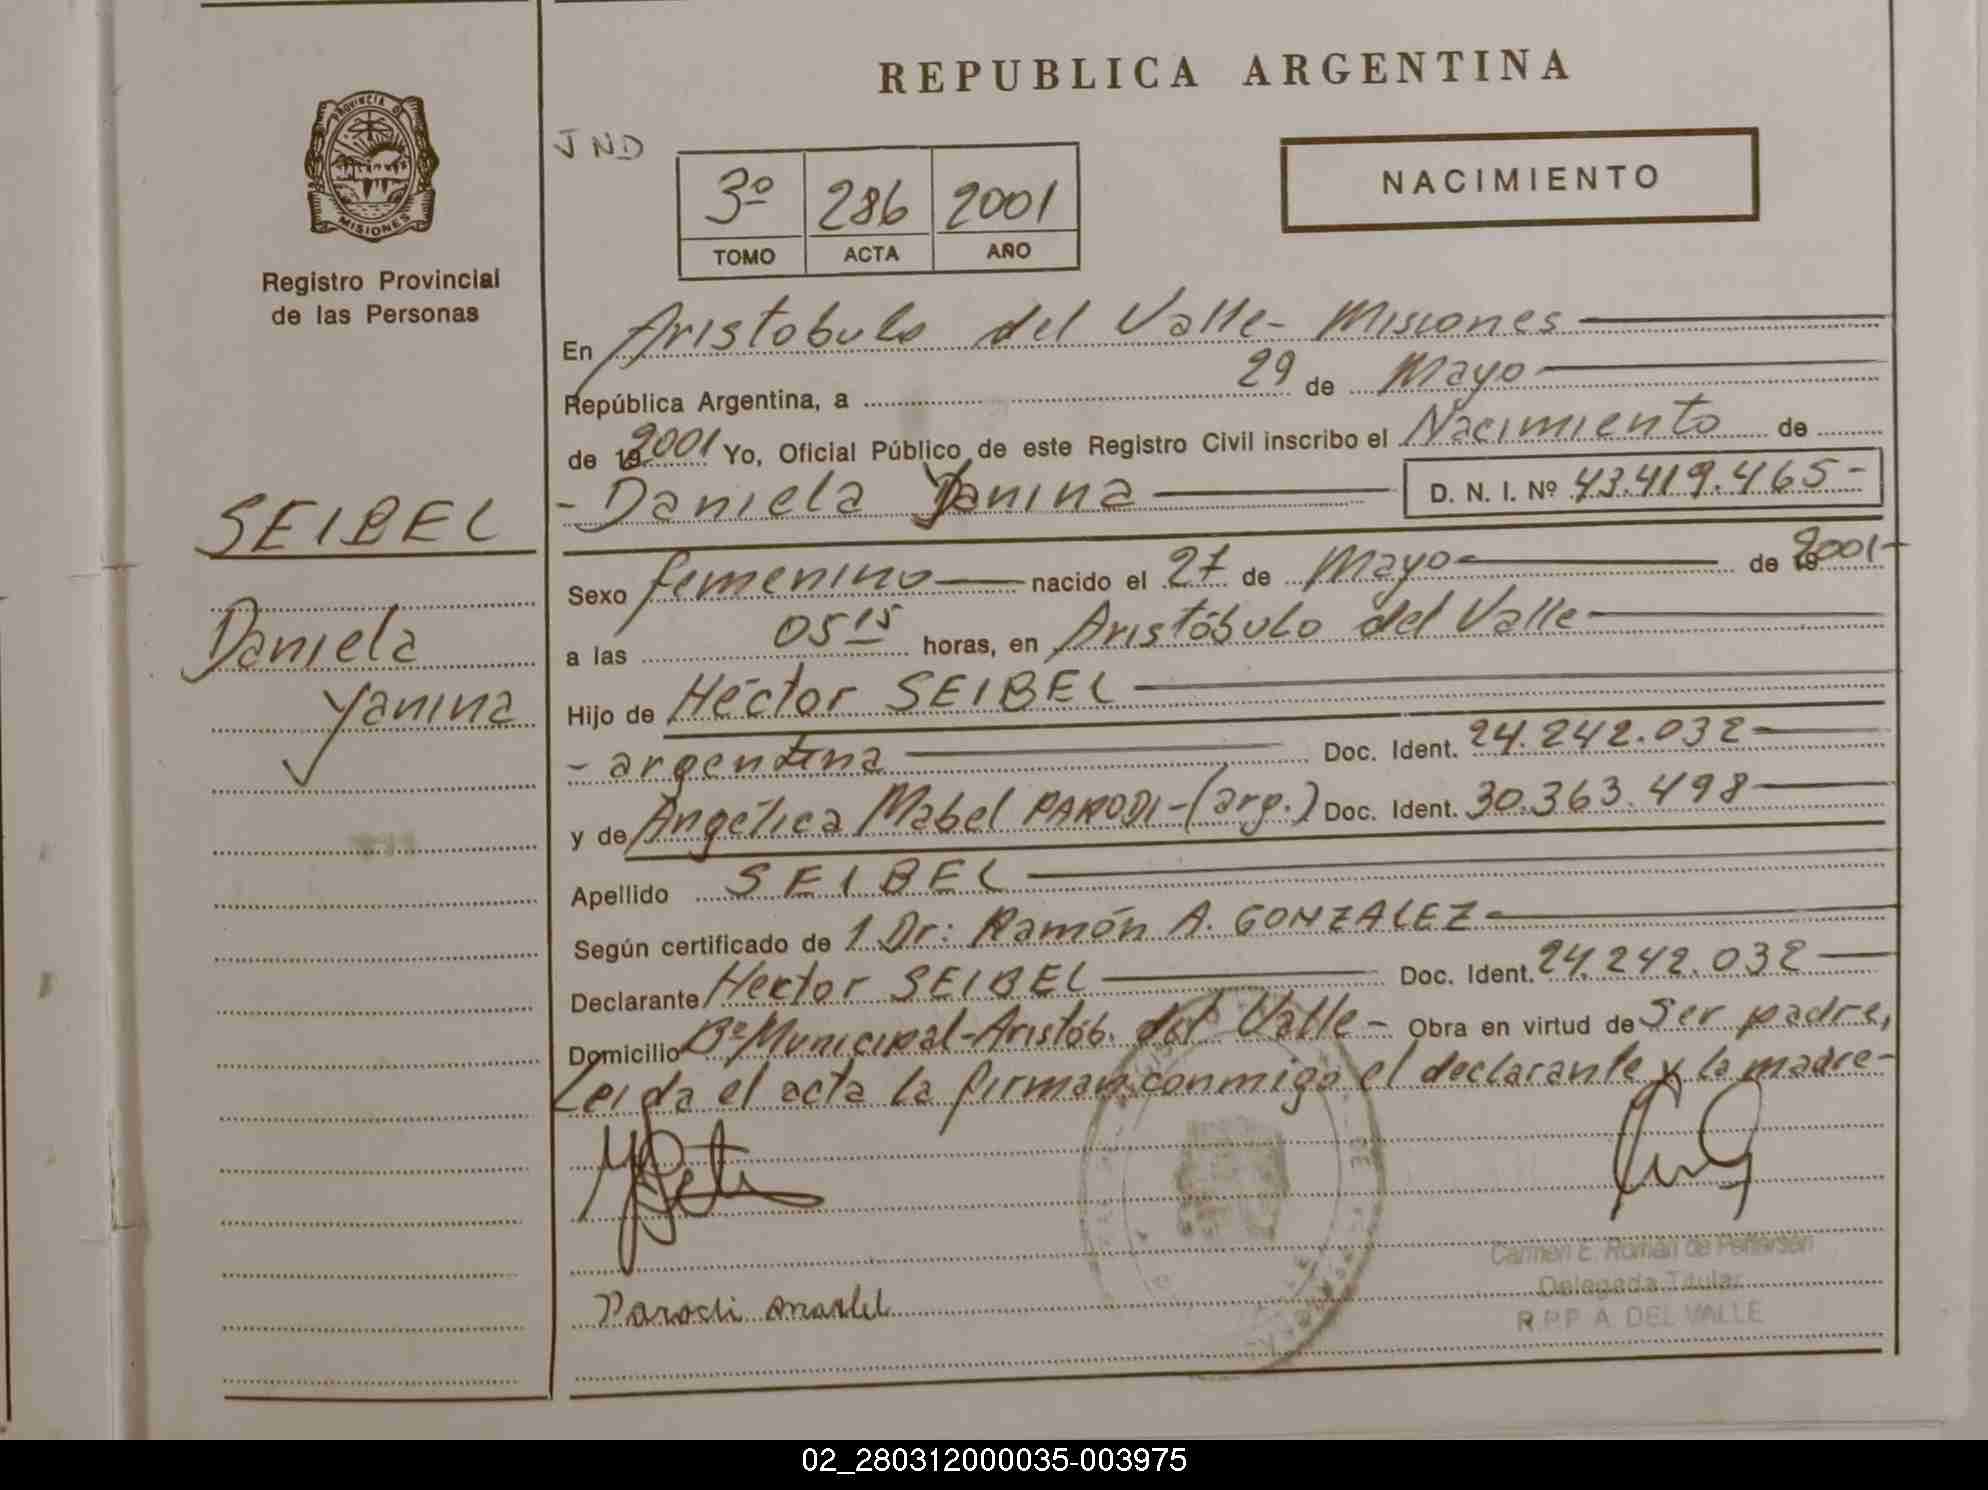 REPUBLICA ARGENTINA
PROVINCIA DE
MISIONES
Registro Provincial
de las Personas
JND
3º 286 2001
TOMO ACTA AÑO
NACIMIENTO
En Aristobulo del Valle - Misiones
República Argentina, a 29 de Mayo
de 192001 Yo, Oficial Público de este Registro Civil inscribo el Nacimiento de
- Daniela Yanina D. N. I. Nº 43.419.465-
SEIBEL
Daniela
Yanina
Sexo femenino nacido el 27 de Mayo de 192001-
a las 05 15 horas, en Aristóbulo del Valle
Hijo de Héctor SEIBEL
- argentina Doc. Ident. 24.242.032
y de Angélica Mabel PARODI - (arg.) Doc. Ident. 30.363.498
Apellido SEIBEL
Según certificado de 1 Dr: Ramón A. GONZALEZ
Declarante Hector SEIBEL Doc. Ident. 24.242.032
Domicilio Bº Municipal - Aristób. del Valle - Obra en virtud de Ser padre,
Leida el acta la firman conmigo el declarante y la madre -
Parodi Mabel
Carmen E. Román de
Delegada Titular
R.P.P A. DEL VALLE
02_280312000035-003975